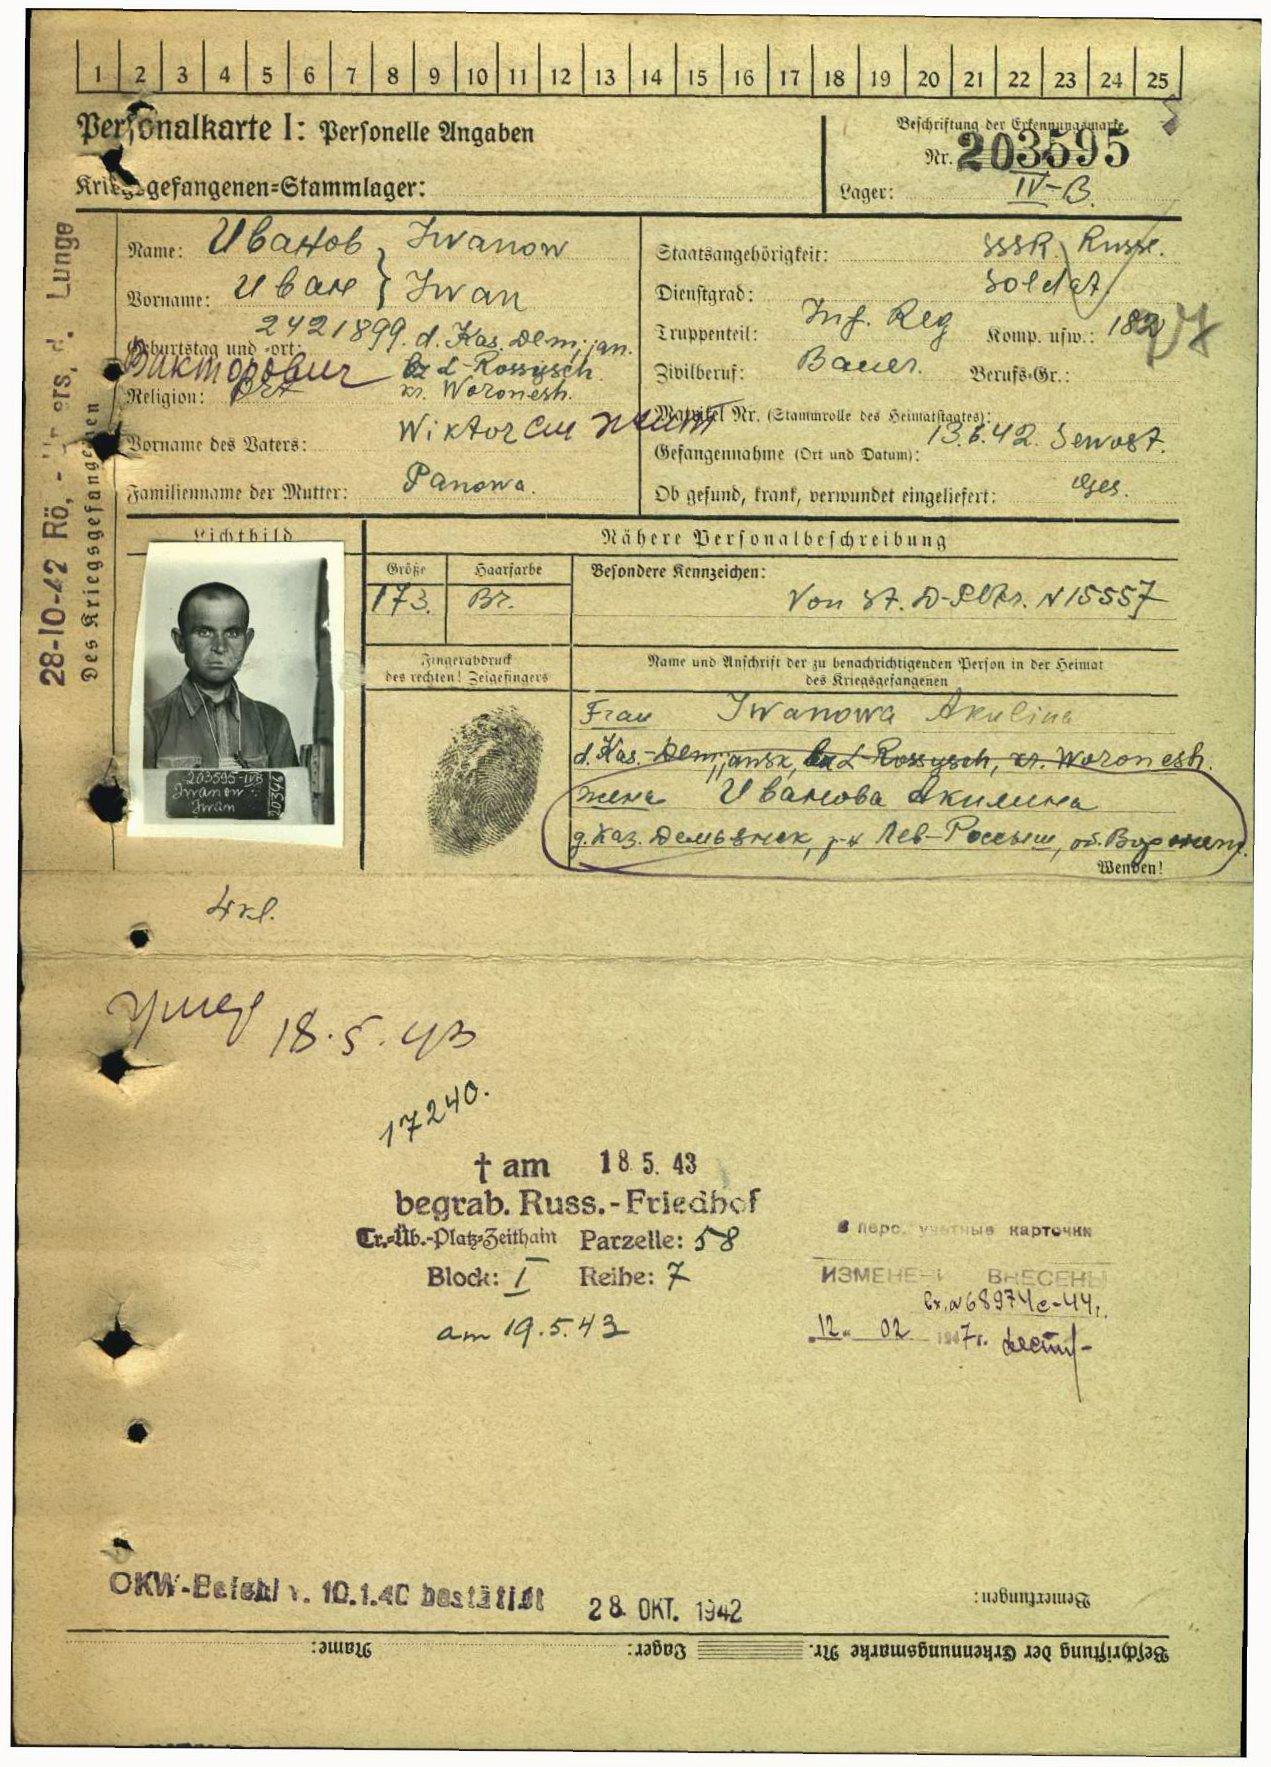 1 2 3 4 5 6 7 8 9 10 11 12 13 14 15 16 17 18 19 20 21 22 23 24 25
Personalkarte I: Personelle Angaben
Kriegsgefangenen=Stammlager:
Beschriftung der Erkennungsmarke
Nr. 203595
Lager: IV-B.
Name: Иванов, Iwanow
Vorname: Иван } Iwan
Geburtstag und -ort: 2421899. d. Kas. Demjjan.
Викторович L-Rossysch
Religion: kr. Woronesh.
Vorname des Vaters: Wiktor
Familienname der Mutter: Panowa.
Staatsangehörigkeit: SSSR. Russe.
Dienstgrad: Soldat
Truppenteil: Inf. Reg Komp. usw.: 182
Zivilberuf: Bauer. Berufs=Gr.:
Matrikel Nr. (Stammrolle des Heimatstaates):
Gefangennahme (Ort und Datum): 13.6.42. Sewost.
Ob gesund, krank, verwundet eingeliefert: Ges.
28-10-42 Rö, d. Lunge
Des Kriegsgefangenen
Lichtbild
Nähere Personalbeschreibung
Größe
173.
Haarfarbe
Br.
Besondere Kennzeichen:
Von St. N 15557
Fingerabdruck
des rechten! Zeigefingers
Name und Anschrift der zu benachrichtigenden Person in der Heimat
des Kriegsgefangenen
Frau Iwanowa Akulina
d. Kas.-Demjjansk, L-Rossysch, kr. Woronesh.
жена Иванова Акилина
д. Каз. Демьянск, р-н Лев-Россыш, об. Воронеж.
Wenden!
203595-IVB
Iwanow
Iwan
20346
4 kl.
умер 18.5.43
17240.
† am 18.5.43
begrab. Russ.-Friedhof
Tr.=Üb.-Platz=Zeithain Parzelle: 58
Block: I Reihe: 7
am 19.5.43
В перс. учетные карточки
ИЗМЕНЕНИЯ ВНЕСЕНЫ
Вх. №68974с-44г.
12. 02 1947г.
OKW-Befehl v. 10.1.40 bestätigt
28. OKT. 1942
Bemerkungen:
Name: Lager: Beschriftung der Erkennungsmarke Nr.